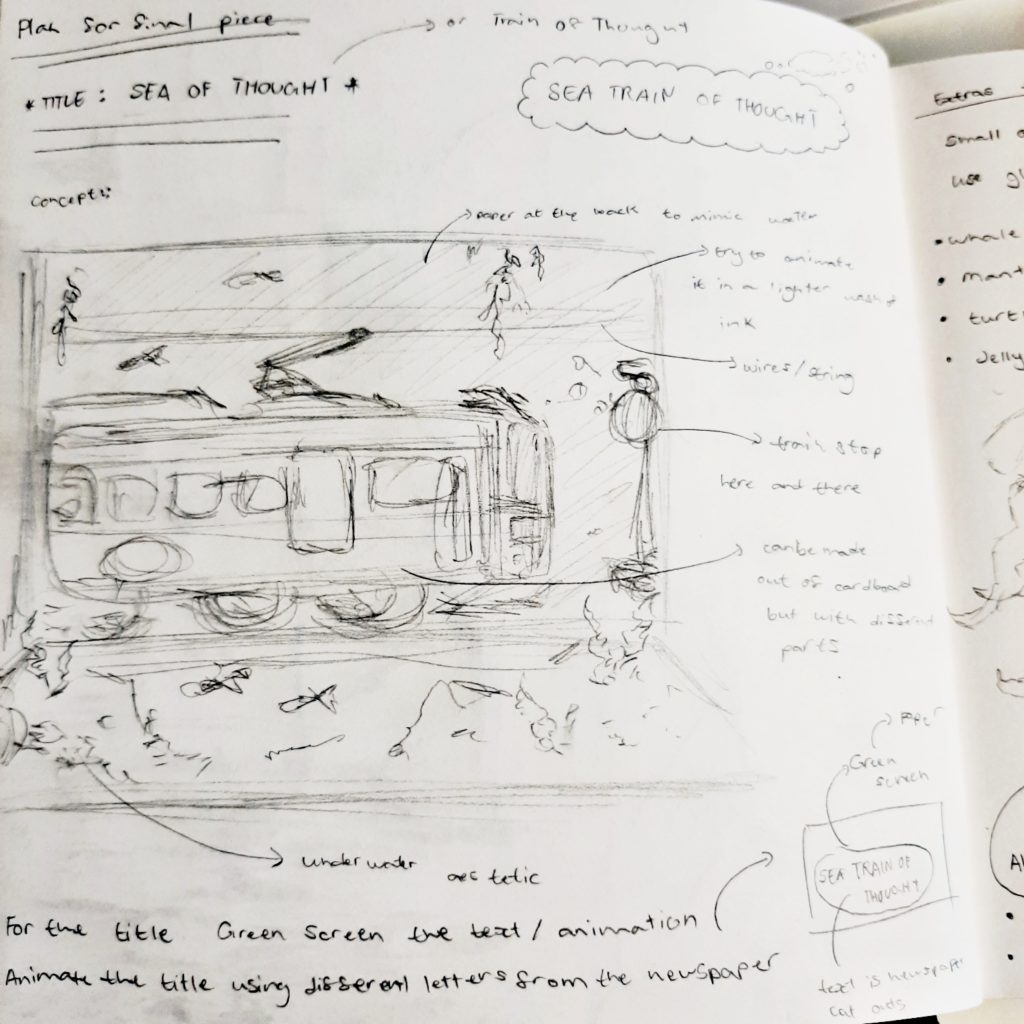 Plan for final piece
→ or Train of Thought
* TITLE : SEA OF THOUGHT *
SEA TRAIN OF THOUGHT
concept:
paper at the back to mimic water
try to animate
it in a lighter wash of
ink
wires/string
train stop
here and there
can be made
out of cardboard
but with different
parts
underwater
aestetic
Green
screen
SEA TRAIN OF
THOUGHT
text is newspaper
cut outs
For the title Green Screen the text / animation
Animate the title using different letters from the newspaper
Extras
small
use
• whale
•
•
•